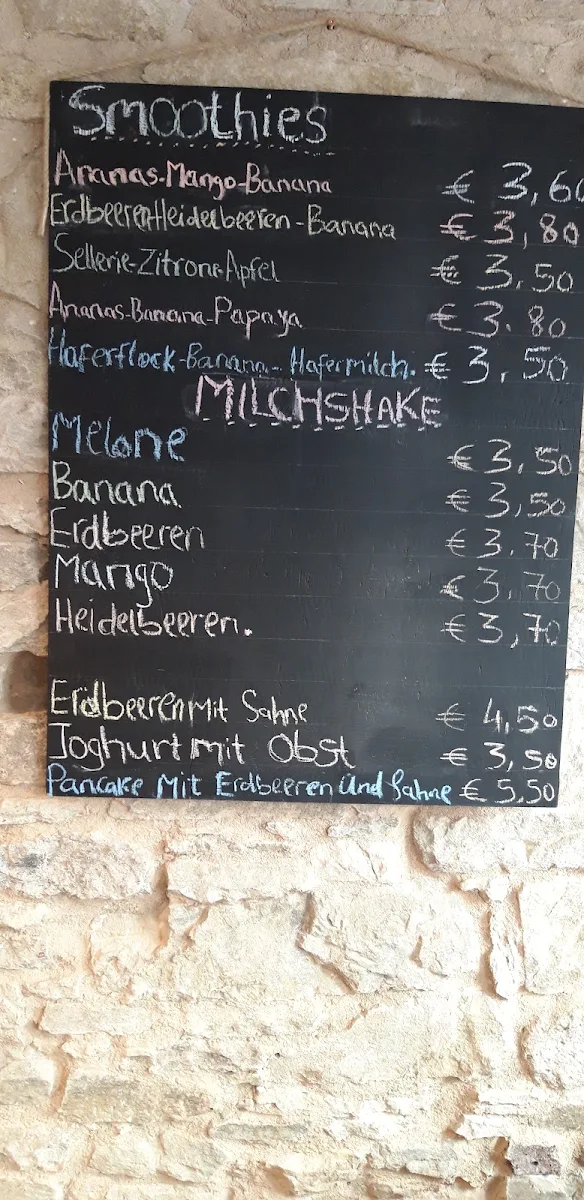 Smoothies
Ananas-Mango-Banana € 3,60
Erdbeeren-Heidelbeeren-Banana € 3,80
Sellerie-Zitrone-Apfel € 3,50
Ananas-Banana-Papaya € 3.80
Haferflock-Banana-Hafermilch. € 3,50
MILCHSHAKE
Melone € 3,50
Banana € 3,50
Erdbeeren € 3.70
Mango € 3.70
Heidelbeeren. € 3,70
Erdbeeren Mit Sahne € 4,50
Joghurt mit Obst € 3,50
Pancake Mit Erdbeeren Und Sahne € 5,50